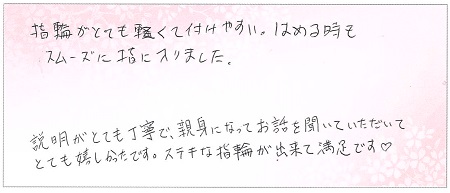 指輪がとても軽くて付けやすい。はめる時も
スムーズに指に入りました。
説明がとても丁寧で、親身になってお話を聞いていただいて
とても嬉しかったです。ステキな指輪が出来て満足です♡